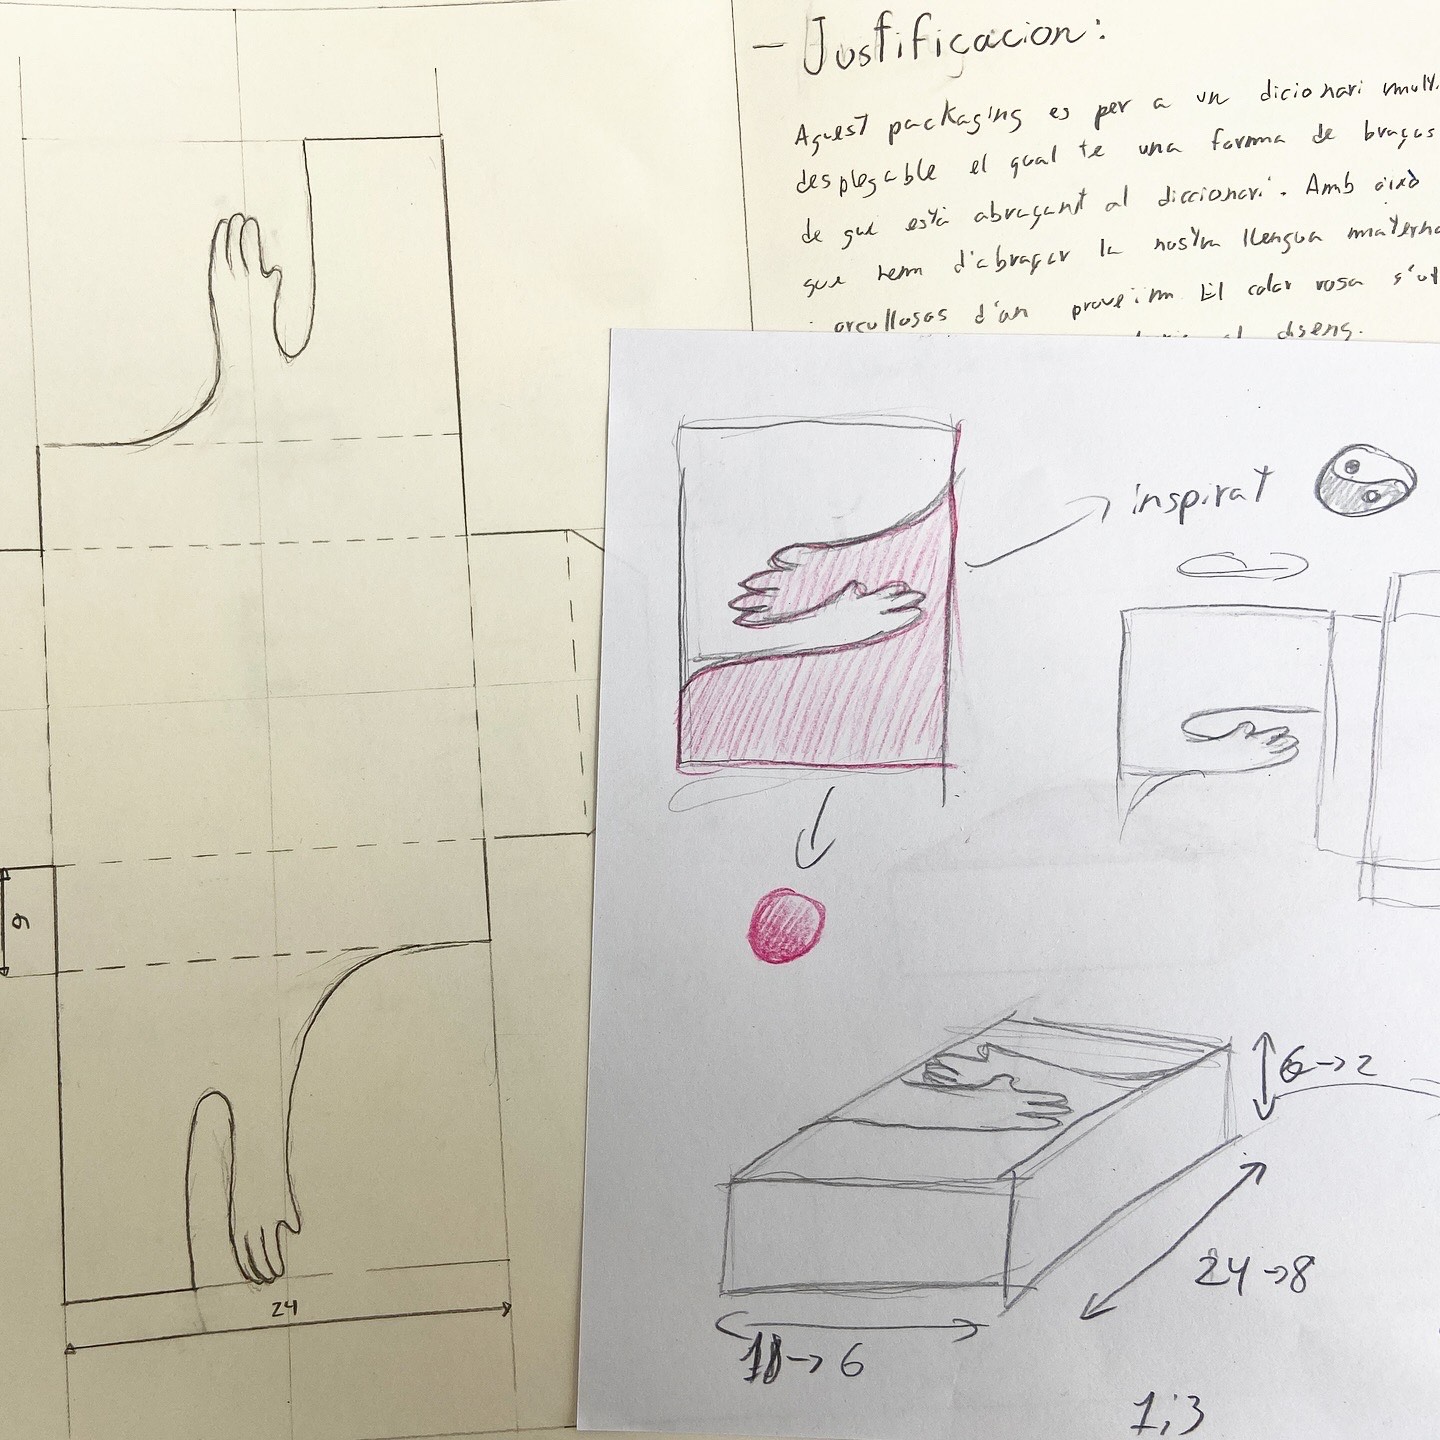 - Justificacion:
Aquest packaging es per a un dicionari mult
desplegable el qual te una forma de braços
de que està abraçant al diccionari. Amb això
que hem d'abraçar la nostra llengua materna
orcullosos d'on proveim El color rosa s'ut
al diseny.
inspirat
6
24
6→2
24→8
18→6
1:3